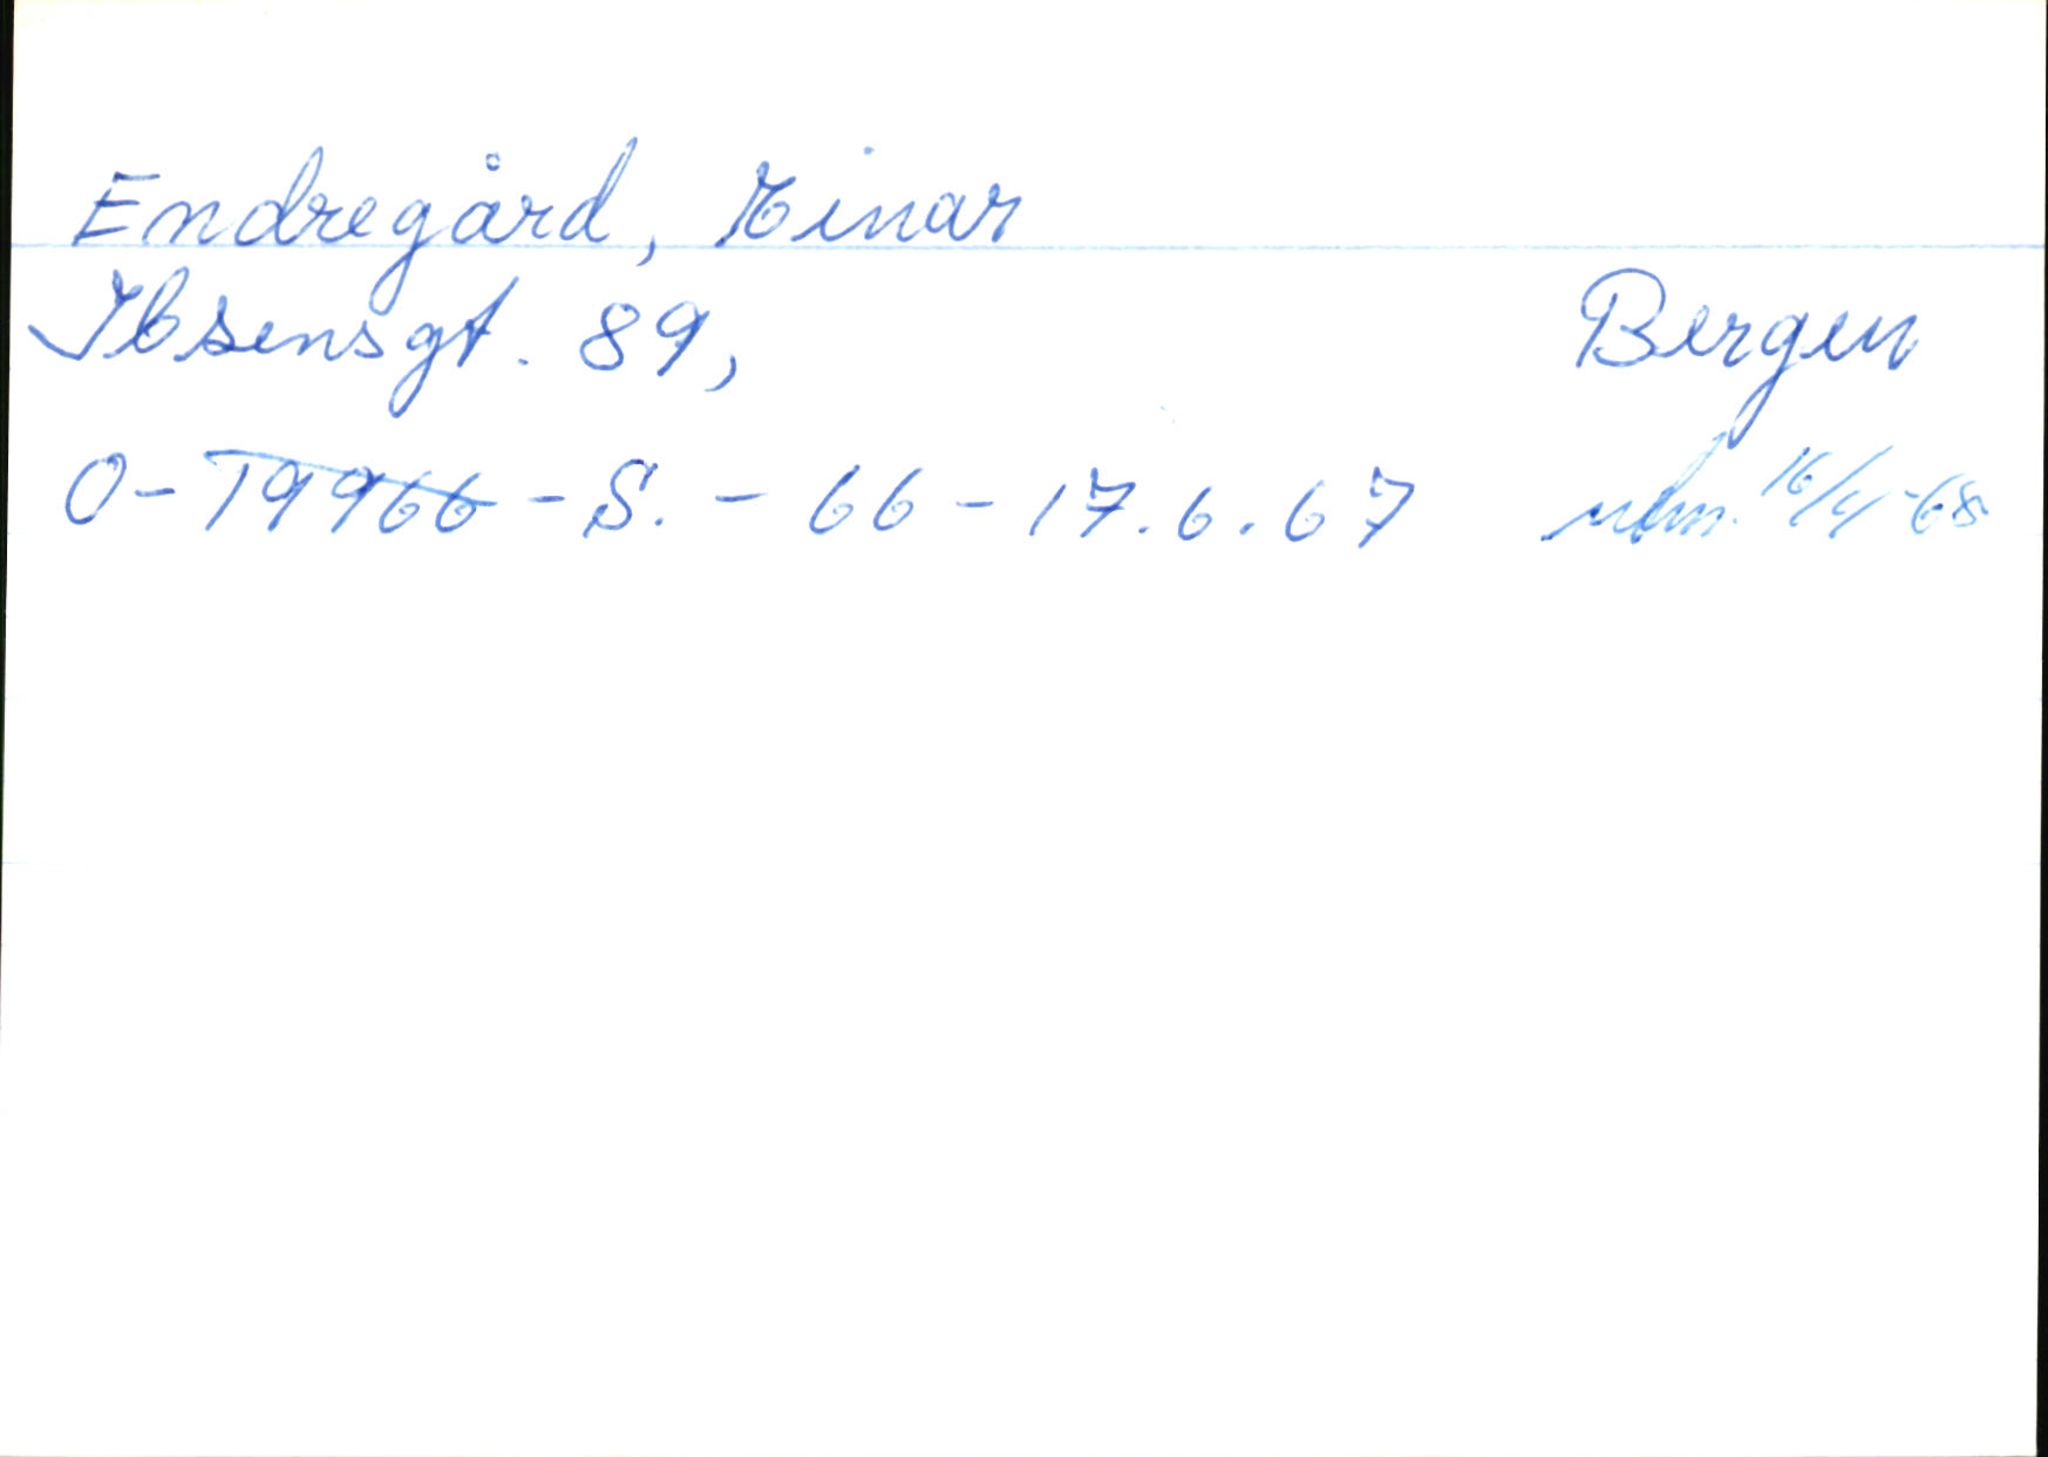 Endregård, Einar
Ibsensgt. 89, Bergen
O-19966-S. - 66 - 17.6.67 16/4-68